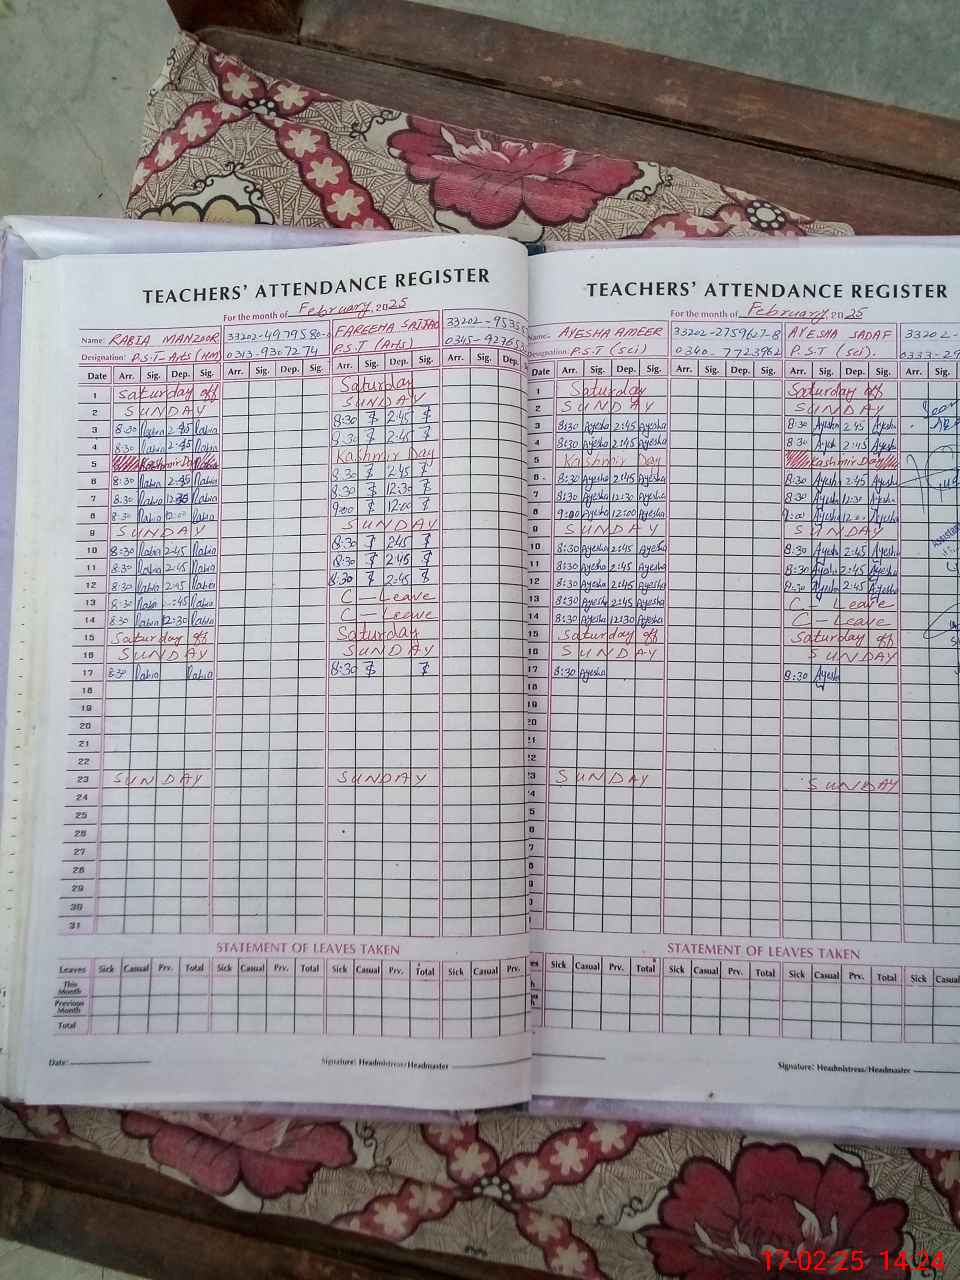 TEACHERS' ATTENDANCE REGISTER
For the month of February, 2025
Name: RABIA MANZOOR 33202-4979580- FAREEHA SAJJAD 33202-9535
Designation: P.S.T-Arts (HM) 0313-9307274 P.S.T (Arts) 0345-92765
Date Arr. Sig. Dep. Sig. Arr. Sig. Dep. Sig. Arr. Sig. Dep. Sig. Arr. Sig. Dep.
1 Saturday off Saturday
2 SUNDAY SUNDAY
3 8:30 Rabia 2:45 Rabia 8:30 2:45
4 8:30 Rabia 2:45 Rabia 8:30 2:45
5 Kashmir Day Kashmir Day
6 8:30 Rabia 2:45 Rabia 8:30 2:45
7 8:30 Rabia 12:30 Rabia 8:30 12:30
8 8:30 Rabia 12:00 Rabia 9:00 12:00
9 SUNDAY SUNDAY
10 8:30 Rabia 2:45 Rabia 8:30 2:45
11 8:30 Rabia 2:45 Rabia 8:30 2:45
12 8:30 Rabia 2:45 Rabia 8:30 2:45
13 8:30 Rabia :45 Rabia C-Leave
14 8:30 Rabia 12:30 Rabia C-Leave
15 Saturday off Saturday
16 SUNDAY SUNDAY
17 8:30 Rabia Rabia 8:30
18
19
20
21
22
23 SUNDAY SUNDAY
24
25
26
27
28
29
30
31
STATEMENT OF LEAVES TAKEN
Leaves Sick Casual Prv. Total Sick Casual Prv. Total Sick Casual Prv. Total Sick Casual Prv.
This Month
Previous Month
Total
Date:
Signature: Headmistress/Headmaster
TEACHERS' ATTENDANCE REGISTER
For the month of February, 2025
Name. AYESHA AMEER 33202-2759627-8 AYESHA SADAF 33202-
Designation: P.S.T (Sci) 0340-7723962 P.S.T (Sci). 0333-29
Date Arr. Sig. Dep. Sig. Arr. Sig. Dep. Sig. Arr. Sig. Dep. Sig. Arr. Sig.
1 Saturday Saturday off
2 SUNDAY SUNDAY
3 8:30 Ayesha 2:45 Ayesha 8:30 Ayesha 2:45 Ayesha
4 8:30 Ayesha 2:45 Ayesha 8:30 Ayesha 2:45 Ayesha
5 Kashmir Day Kashmir Day
6 8:30 Ayesha 2:45 Ayesha 8:30 Ayesha 2:45 Ayesha
7 8:30 Ayesha 12:30 Ayesha 8:30 Ayesha 12:30 Ayesha
8 9:00 Ayesha 12:00 Ayesha 9:00 Ayesha 12:0 Ayesha
9 SUNDAY SUNDAY
10 8:30 Ayesha 2:45 Ayesha 8:30 Ayesha 2:45 Ayesha
11 8:30 Ayesha 2:45 Ayesha 8:30 Ayesha 2:45 Ayesha
12 8:30 Ayesha 2:45 Ayesha 8:30 Ayesha 2:45 Ayesha
13 8:30 Ayesha 2:45 Ayesha C-Leave
14 8:30 Ayesha 12:30 Ayesha C-Leave
15 Saturday off Saturday off
16 SUNDAY SUNDAY
17 8:30 Ayesha 8:30 Ayesha
18
19
20
21
22
23 SUNDAY SUNDAY
4
5
6
7
8
9
0
1
STATEMENT OF LEAVES TAKEN
Sick Casual Prv. Total Sick Casual Prv. Total Sick Casual Prv. Total Sick Casual
Signature: Headmistress/Headmaster
17-02-25 14:24